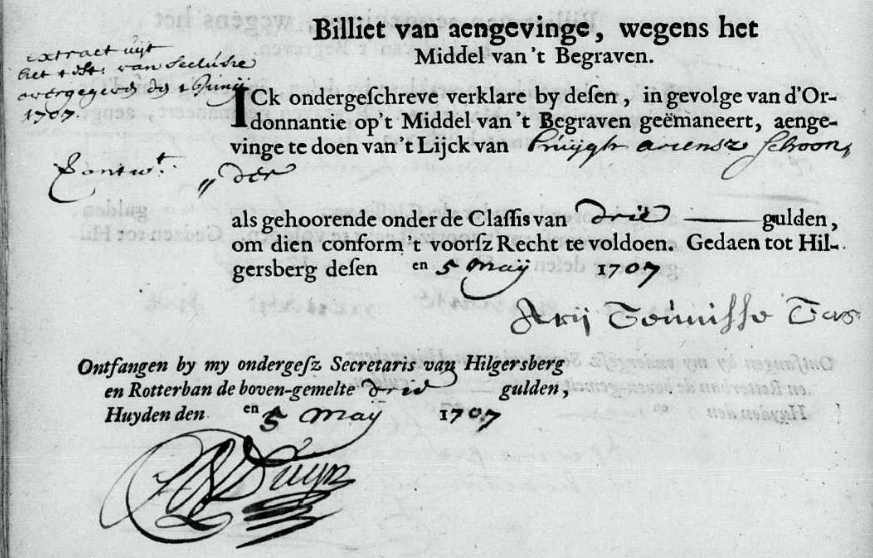 Billiet van aengevinge, wegens het
Middel van't Begraven.
extract uijt
het
overgegeven den Junij
1707.
ICk ondergeſchreve verklare by deſen, in gevolge van d'Or-
donnantie op't Middel van't Begraven geëmaneert, aenge-
vinge te doen van't Lijck van Pruijgh ariensz Schoon,
der
als gehoorende onder de Claſſis van drie gulden,
om dien conform't voorſz Recht te voldoen. Gedaen tot Hil-
gersberg deſen en 5 Maij 1707
Arij Teunisse
Ontfangen by my ondergeſz Secretaris van Hilgersberg
en Rotterban de boven-gemelte drie gulden,
Huyden den en 5 Maij 1707